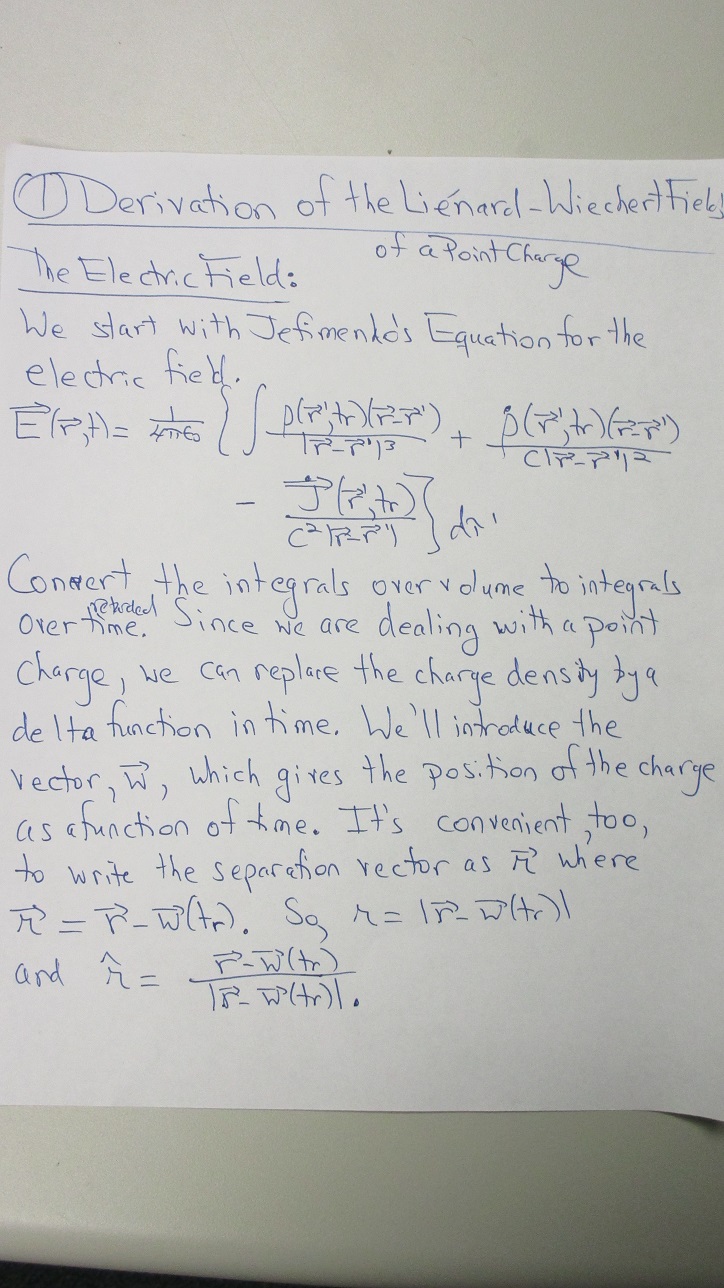 ① Derivation of the Liénard-Wiechert Fields
of a Point Charge
The Electric Field:
We start with Jefimenko's Equation for the
electric field.
E⃗(r⃗,t) = 1/4πε₀ { ∫ ρ(r⃗',tr)(r⃗-r⃗')/|r⃗-r⃗'|³ + ρ̇(r⃗',tr)(r⃗-r⃗')/c|r⃗-r⃗'|²
- J̇⃗(r⃗',tr)/c²|r⃗-r⃗'| } dτ'
Convert the integrals over volume to integrals
over retarded time. Since we are dealing with a point
charge, we can replace the charge density by a
delta function in time. We'll introduce the
vector, w⃗, which gives the position of the charge
as a function of time. It's convenient, too,
to write the separation vector as r⃗ where
r⃗ = r⃗ - w⃗(tr). So, r = |r⃗ - w⃗(tr)|
and r̂ = r⃗-w⃗(tr)/|r⃗-w⃗(tr)|.